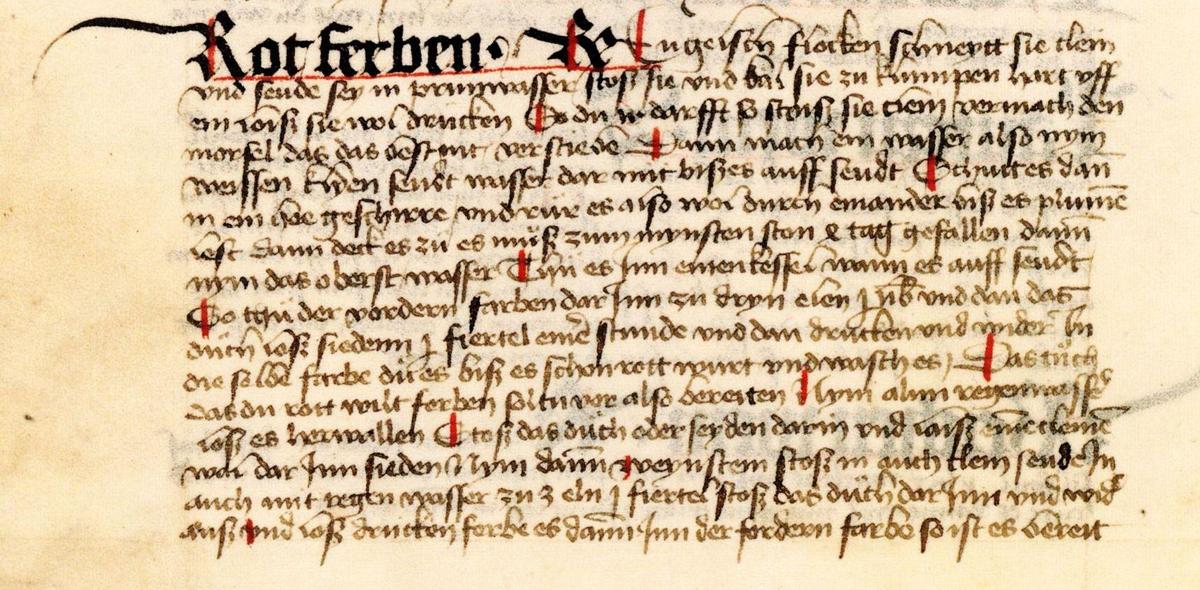 Rot ferben · R Lugeisch flocken schneytt sie clein
vnd seude sey in prunwasser stosß sie vnd bal sie zu klumpen hart vff
ein loiß sie wol drucken So du ir darfft So stoiß sie clein vermach den
morsel das das best nit verstiebe Dann mach ein wasser also nym
weissen kyen seudt wasser dar mit biß es auff seudt Schut es dan
in ein geschirre vnd rur es also wol durch einander biß es plumen
lest dann deck es zu es muß zum mynsten ston tag gefallen dann
nym das oberst wasser Thu es Inn einen kessel wann es auff seudt
So thu der vordern farben dar Inn zu dryn elen j lib vnd dan das
duch loß siedenn j fiertel einer stunde vnd dan drucken vnd wider In
die selbe farbe du es biß es schon rott wurt vnd wasch es / Das tuch
das du rott wilt ferben soltu vor also bereiten Nym alun regenwasser
loß es herwallen Stoß das duch oder seyden darin vnd laiß eine cleine
wal dar Inn sieden Nym dann weynstein stoß in auch klein seude In
auch mit regen wasser zu 3 eln j fiertel stoß das duch dar Inn vnd wider
auß vnd loß drucken ferbe es dann Inn der fordern farbe so ist es bereit